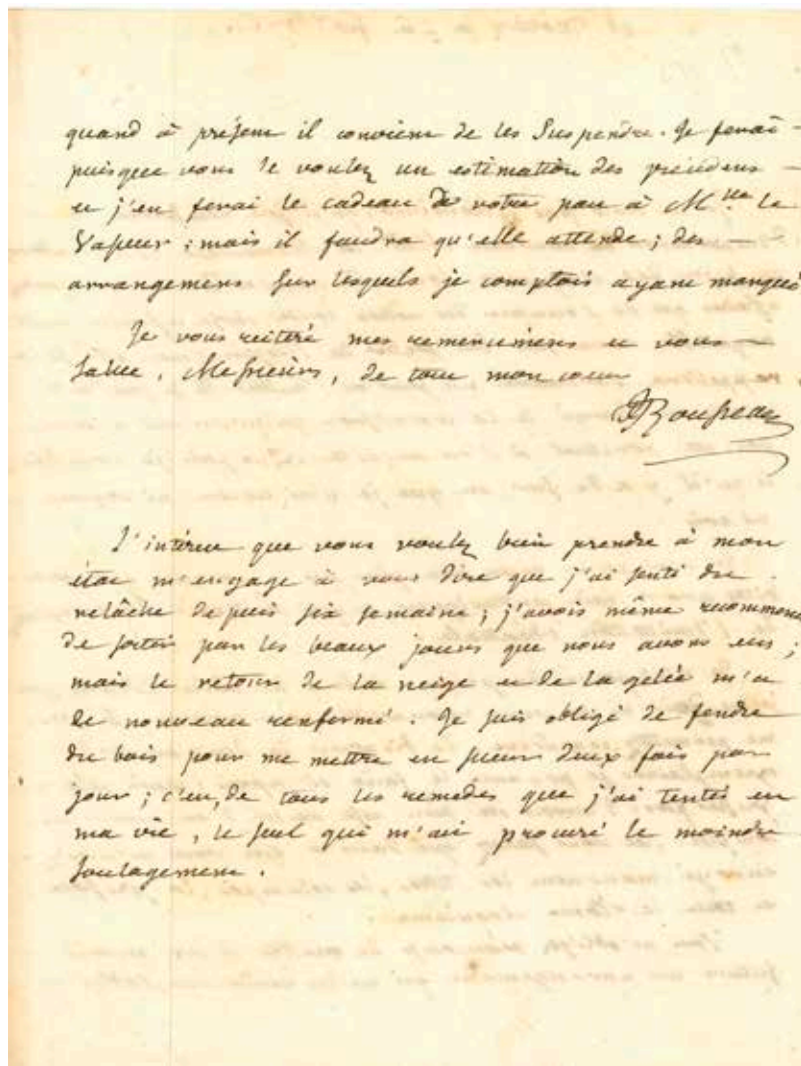 quand à présent il convient de les Suspendre. Je ferai –
puisque vous le voulez un estimation des précédens –
et j'en ferai le cadeau de votre part à M.lle le
Vasseur ; mais il faudra qu'elle attende ; des –
arrangemens sur lesquels je comptois ayant manqués
Je vous reitére mes remercimens et vous –
salue, Messieurs, de tout mon coeur
JJRousseau
L'intérest que vous voulez bien prendre à mon
état m'engage à vous dire que j'ai senti du
relâche depuis six semaine ; j'avois même recommencé
de sortir par les beaux jours que nous avons eus ;
mais le retour de la neige et de la gelée m'a
de nouveau renfermé. Je suis obligé de fendre
du bois pour me mettre en sueur deux fois par
jour ; c'est, de tous les remedes que j'ai tentés en
ma vie, le seul qui m'ait procuré le moindre
soulagement.